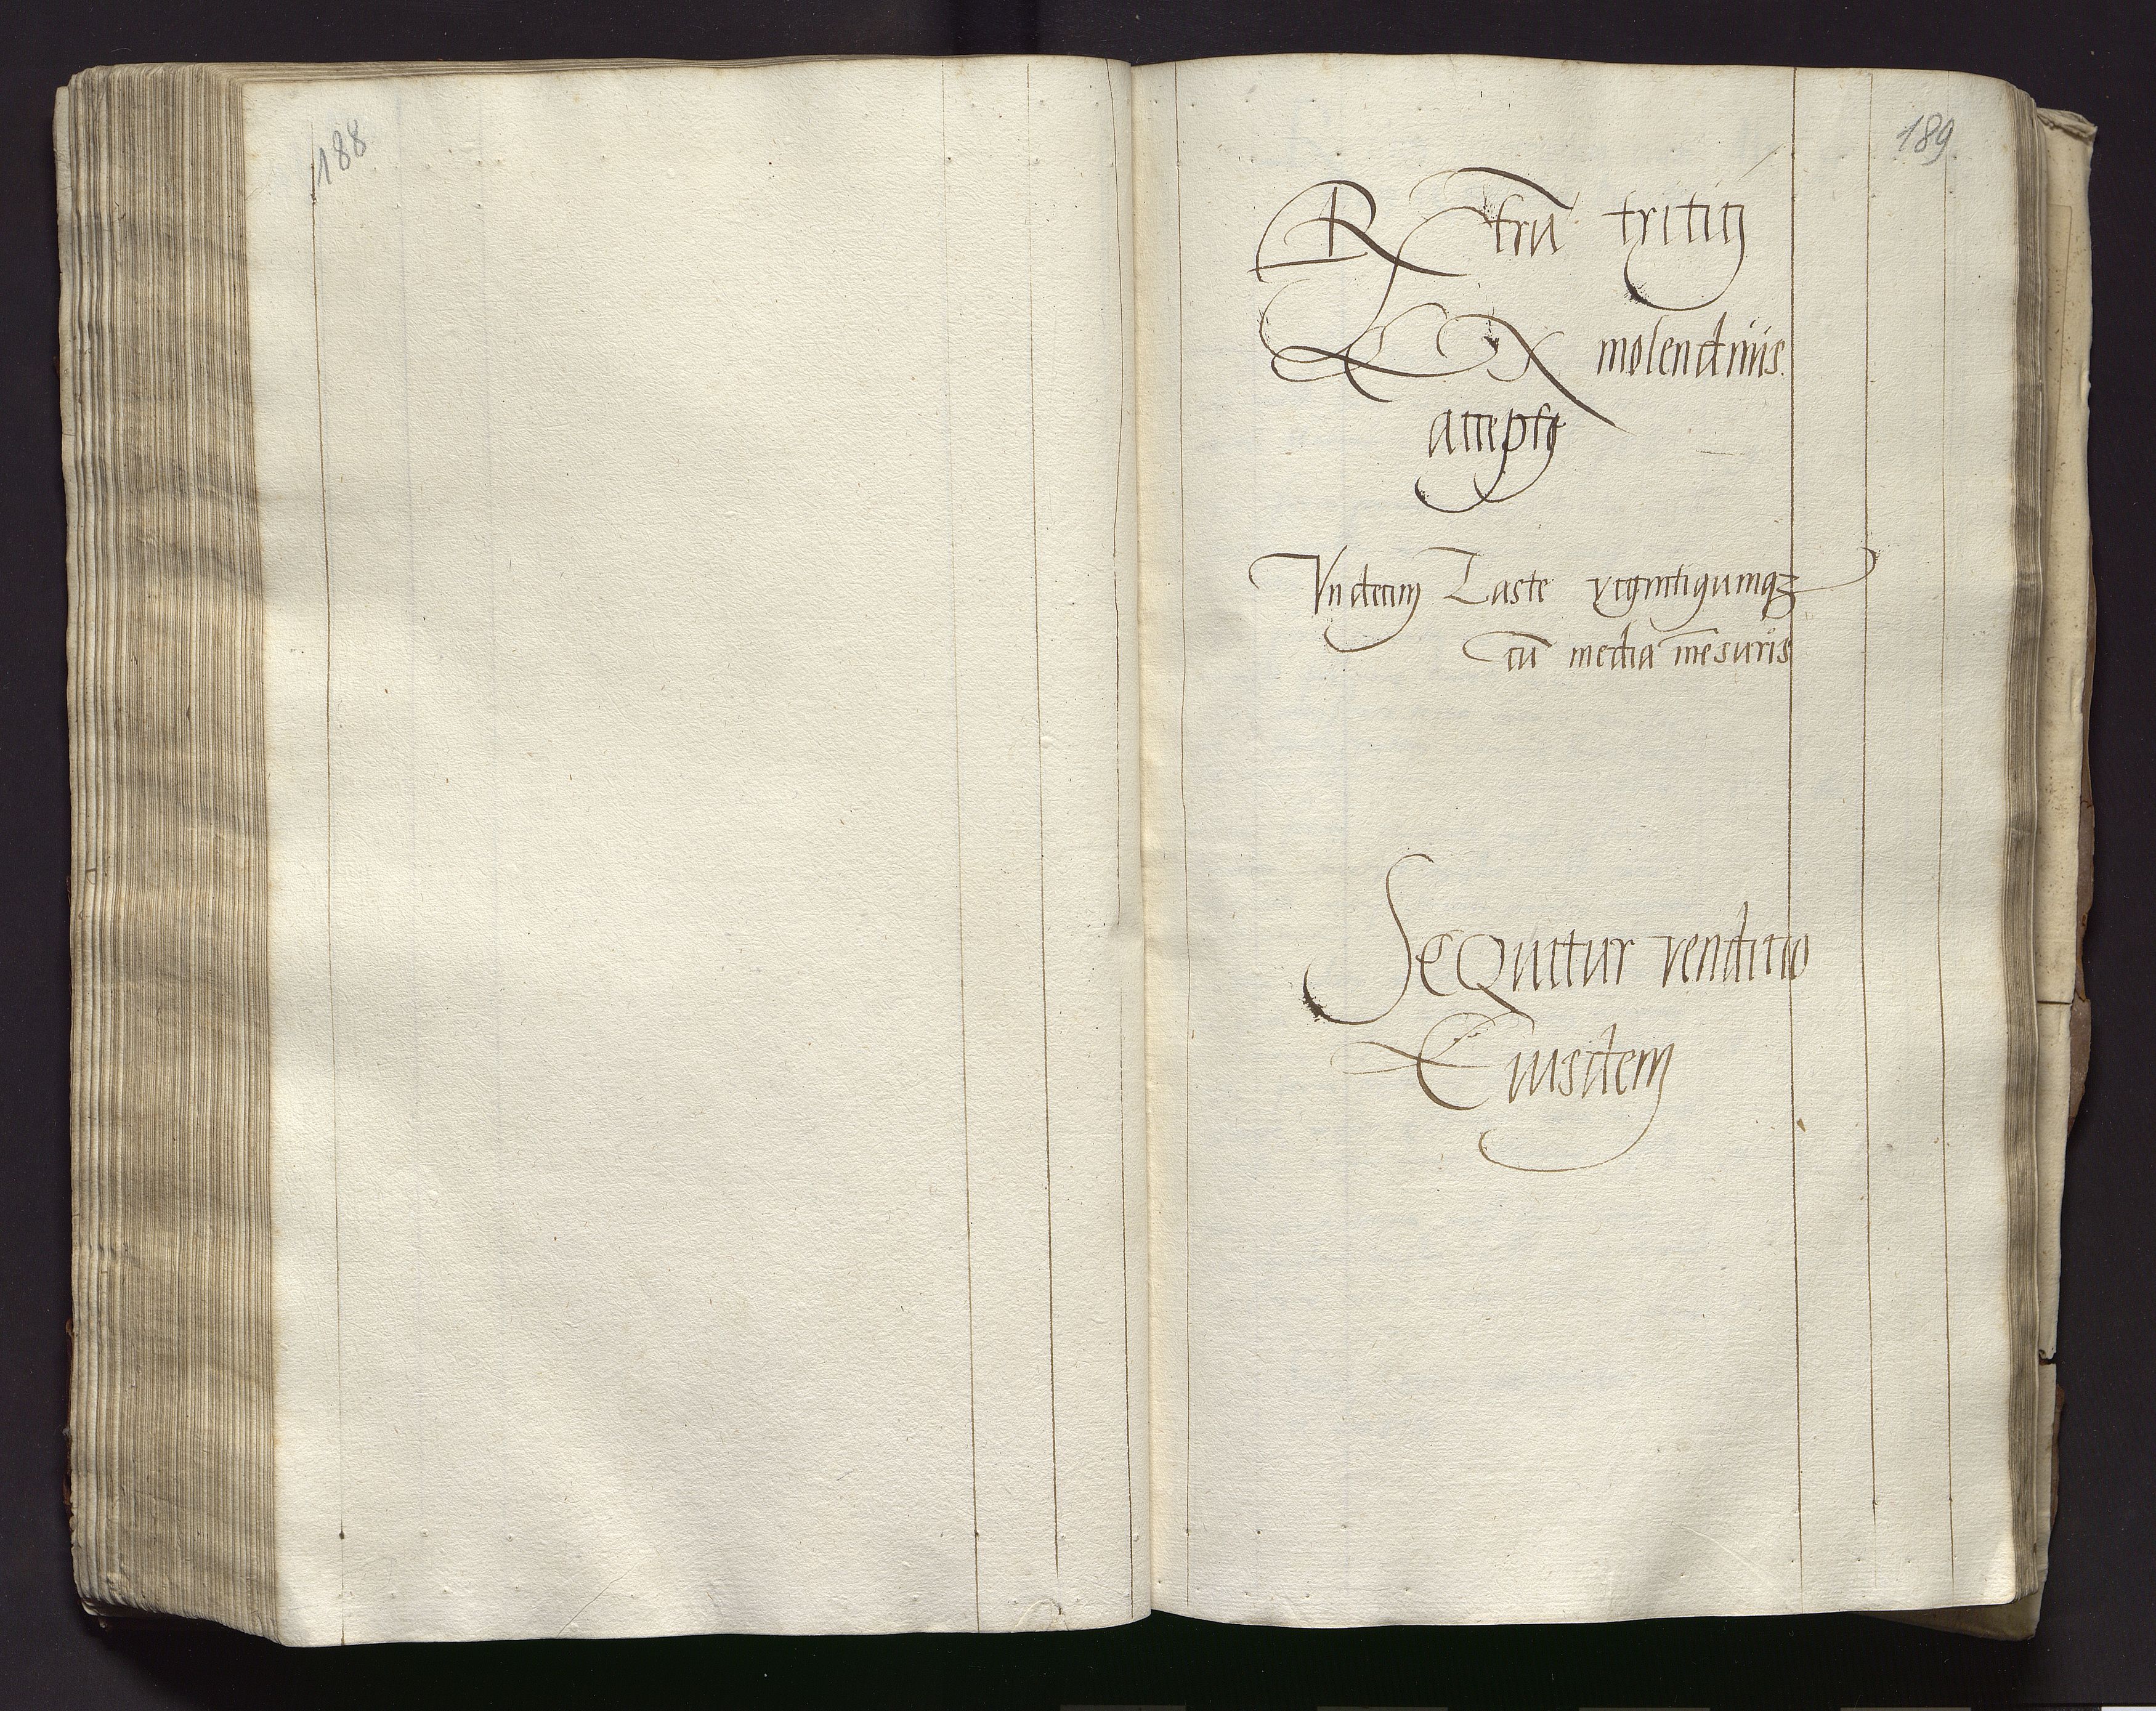 188
189
tritici
Ex molendinis
accepti
Vndecim Laste vigintiquinqz
cū media mēsuris
Sequitur venditio
Eiusdem